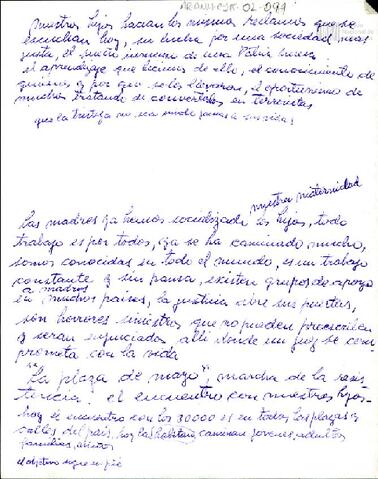 ARGNAM-FSR-02-099
nuestros hijos hacían los mismos reclamos que se
escuchan hoy, su lucha por una sociedad más
justa, el sueño inmenso de una Patria nueva
el aprendizaje que hicimos de ello, el conocimiento de
quienes y por que se los llevaron, el oportunismo de
muchos tratando de convertirlos en terroristas
que la tristeza no sea unida jamas a sus vidas
nuestra maternidad
Las madres ya hemos socializado los hijos, todo
trabajo es por todos, ya se ha caminado mucho,
somos conocidas en todo el mundo, es un trabajo
constante y sin pausa, existen grupos de apoyo
a madres
en muchos paises, la justicia abre sus puertas,
son horrores siniestros que no pueden prescribir
y seran enjuiciados alli donde un juez se com-
prometa con la vida
"La plaza de mayo" marcha de la resis-
tencia: el encuentro con nuestros hijos-
hoy el encuentro con los 30000 es en todas las plazas y
calles del pais, hoy las habitan, caminan jovenes, adultos
familias,
el objetivo sigue en pie